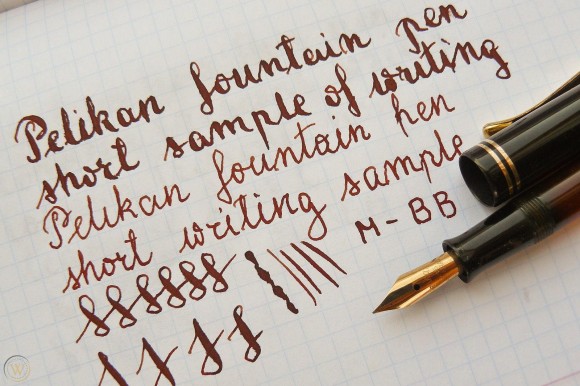 Pelikan fountain pen
short sample of writing
Pelikan fountain pen
short writing sample
M-BB